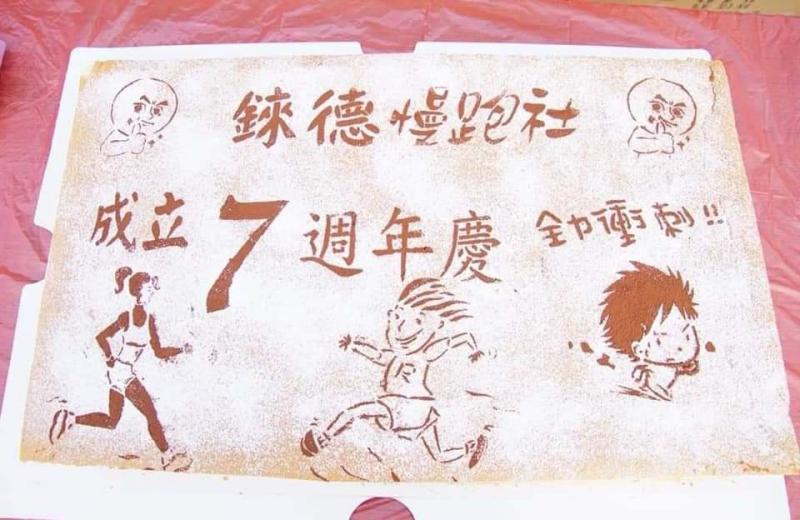 錸德慢跑社
成立7週年慶
全力衝刺!!
R